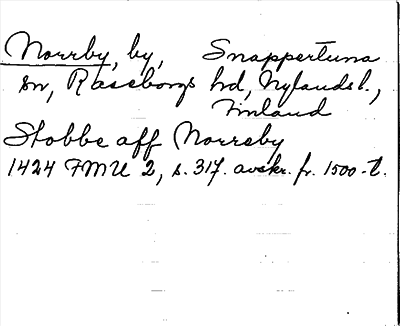 Norrby, by, Snappertuna
sn, Raseborgs hd, Nylands l.,
Finland
Stobbe aff Norreby
1424 FMU 2, s. 317. avskr. fr. 1500-t.